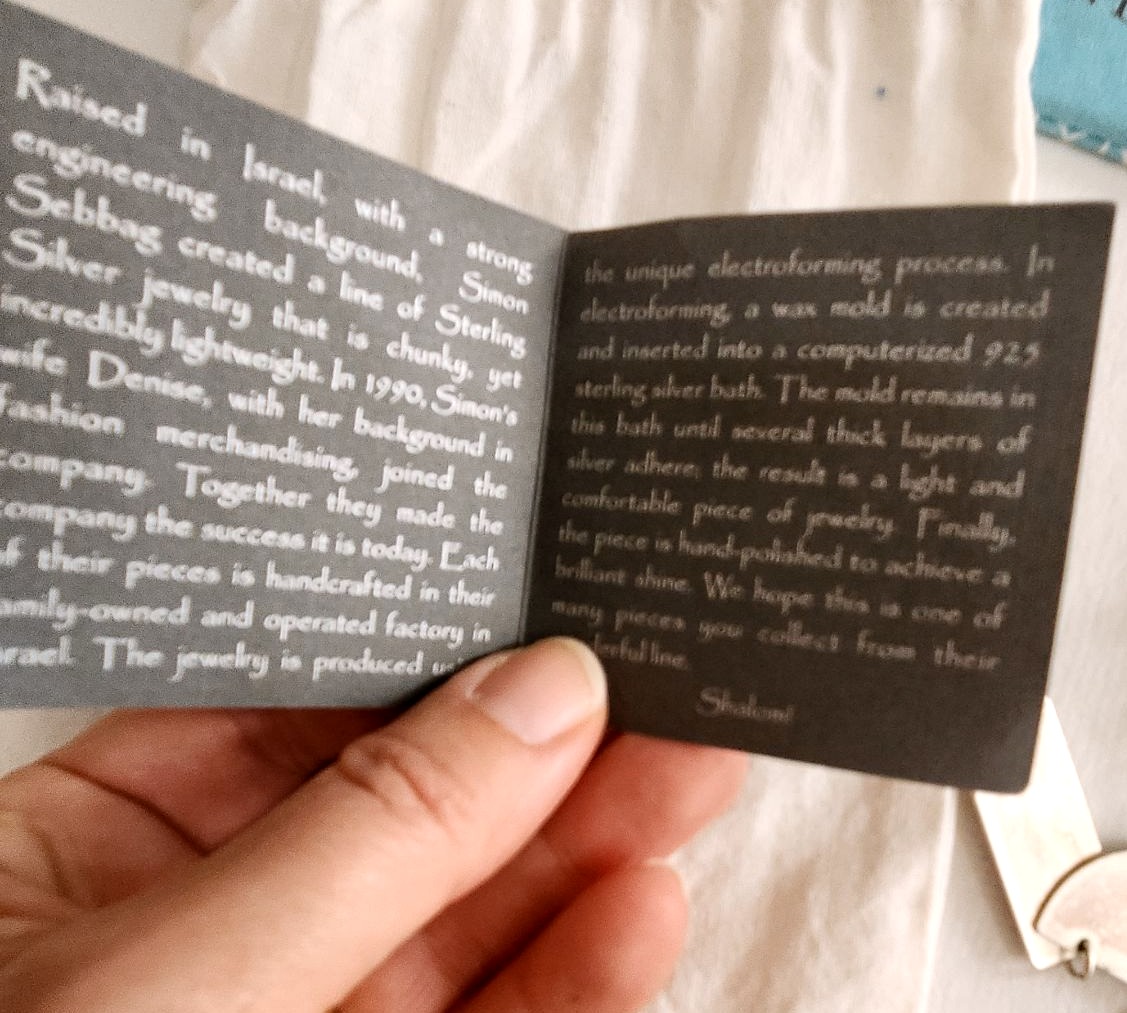 Raised in Israel, with a strong
engineering background, Simon
Sebbag created a line of Sterling
Silver jewelry that is chunky, yet
incredibly lightweight. In 1990, Simon's
wife Denise, with her background in
fashion merchandising, joined the
company. Together they made the
company the success it is today. Each
of their pieces is handcrafted in their
amily-owned and operated factory in
rael. The jewelry is produced
the unique electroforming process. In
electroforming, a wax mold is created
and inserted into a computerized 925
sterling silver bath. The mold remains in
this bath until several thick layers of
silver adhere; the result is a light and
comfortable piece of jewelry. Finally,
the piece is hand-polished to achieve a
brilliant shine. We hope this is one of
many pieces you collect from their
derful line.
Shalom!